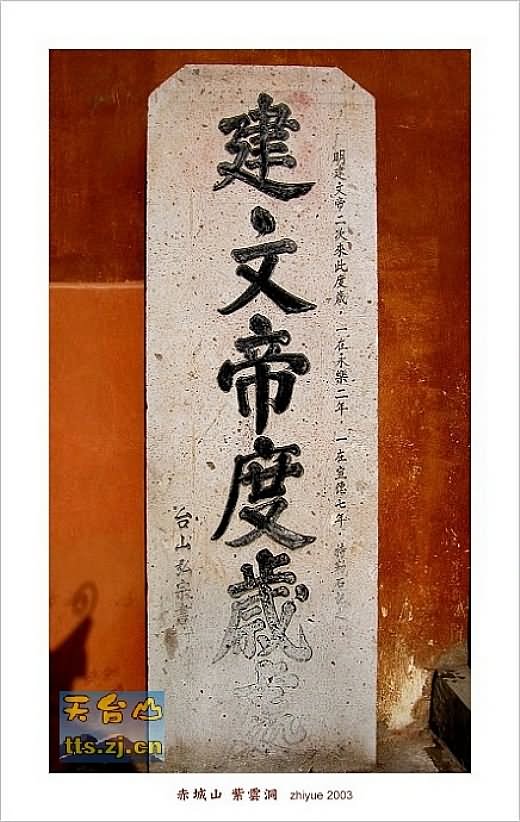 明建文帝二次來此度歲，一在永樂二年，一在宣德七年，特勒石
建文帝度歲
台山弘宗書
天台山
tts.zj.cn
赤城山 紫雲洞 zhiyue 2003